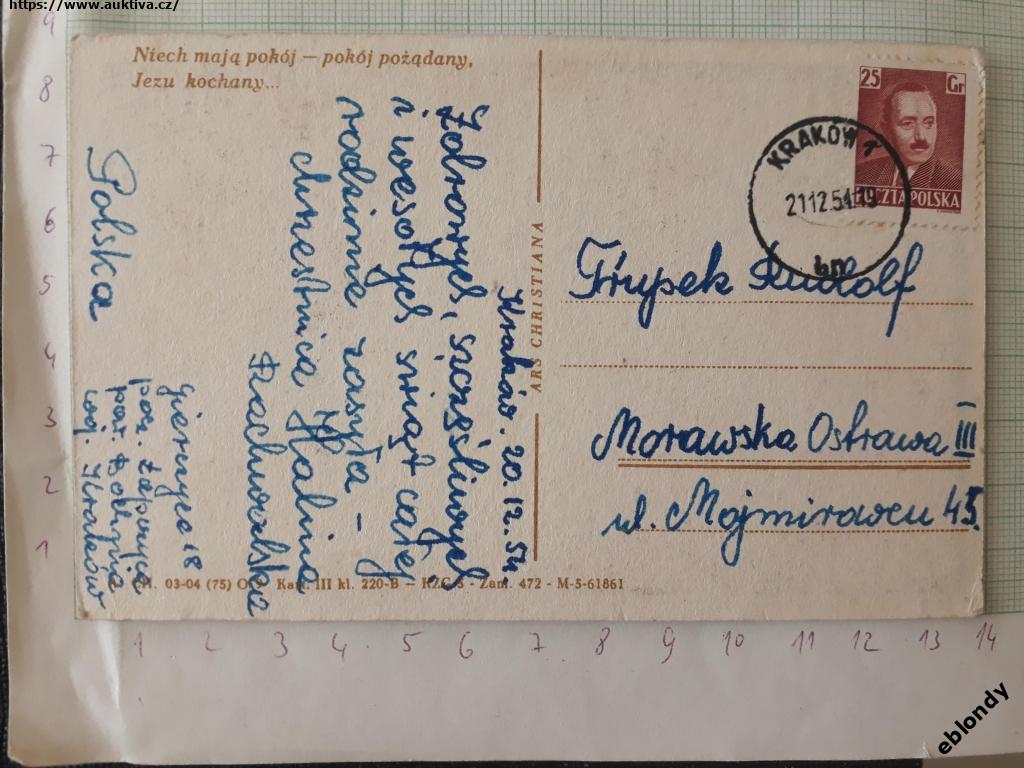 https://www.auktiva.cz/
Niech mają pokój — pokój pożądany,
Jezu kochany...
25 Gr
POCZTA POLSKA
KRAKÓW 1
21 12 54 19
ARS CHRISTIANA
Kraków. 20.12.54.
Zdrowych, szczęśliwych
i wesołych świąt całej
rodzinie zasyła -
chrzestnica Halina
Polska
18
woj. Kraków
Rudolf
Morawska Ostrawa III
ul. Mojmirowcu 45.
03-04 (75) Kart. III kl. 220-B — RZG-3 - Zam. 472 - M-5-61861
9
8
7
6
5
4
3
2
1
1 2 3 4 5 6 7 8 9 10 11 12 13 14
eblondy